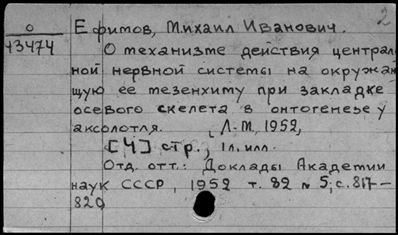 2
0
43474
Ефимов, Михаил Иванович.
О механизме действия централь
ной нервной системы на окружаю
щую ее мезенхиму при закладке
осевого скелета в онтогенезе у
аксолотля. Л.-М, 1952,
[4] стр., 1 л. илл.
Отд. отт.: Доклады Академии
наук СССР, 1952 т. 82 № 5, с. 817–
820